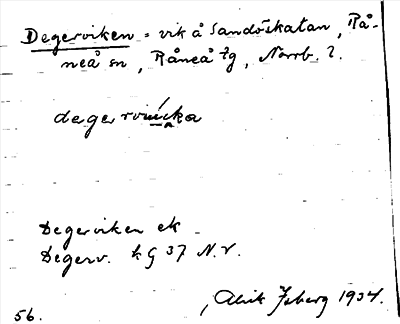 Degerviken = vik å Sandöskatan, Rå-
neå sn, Råneå tg, Norrb. l.
degervíika
Degerviken ek
Degerv. k G 37 N.V.
Alrik Isberg 1934.
56.